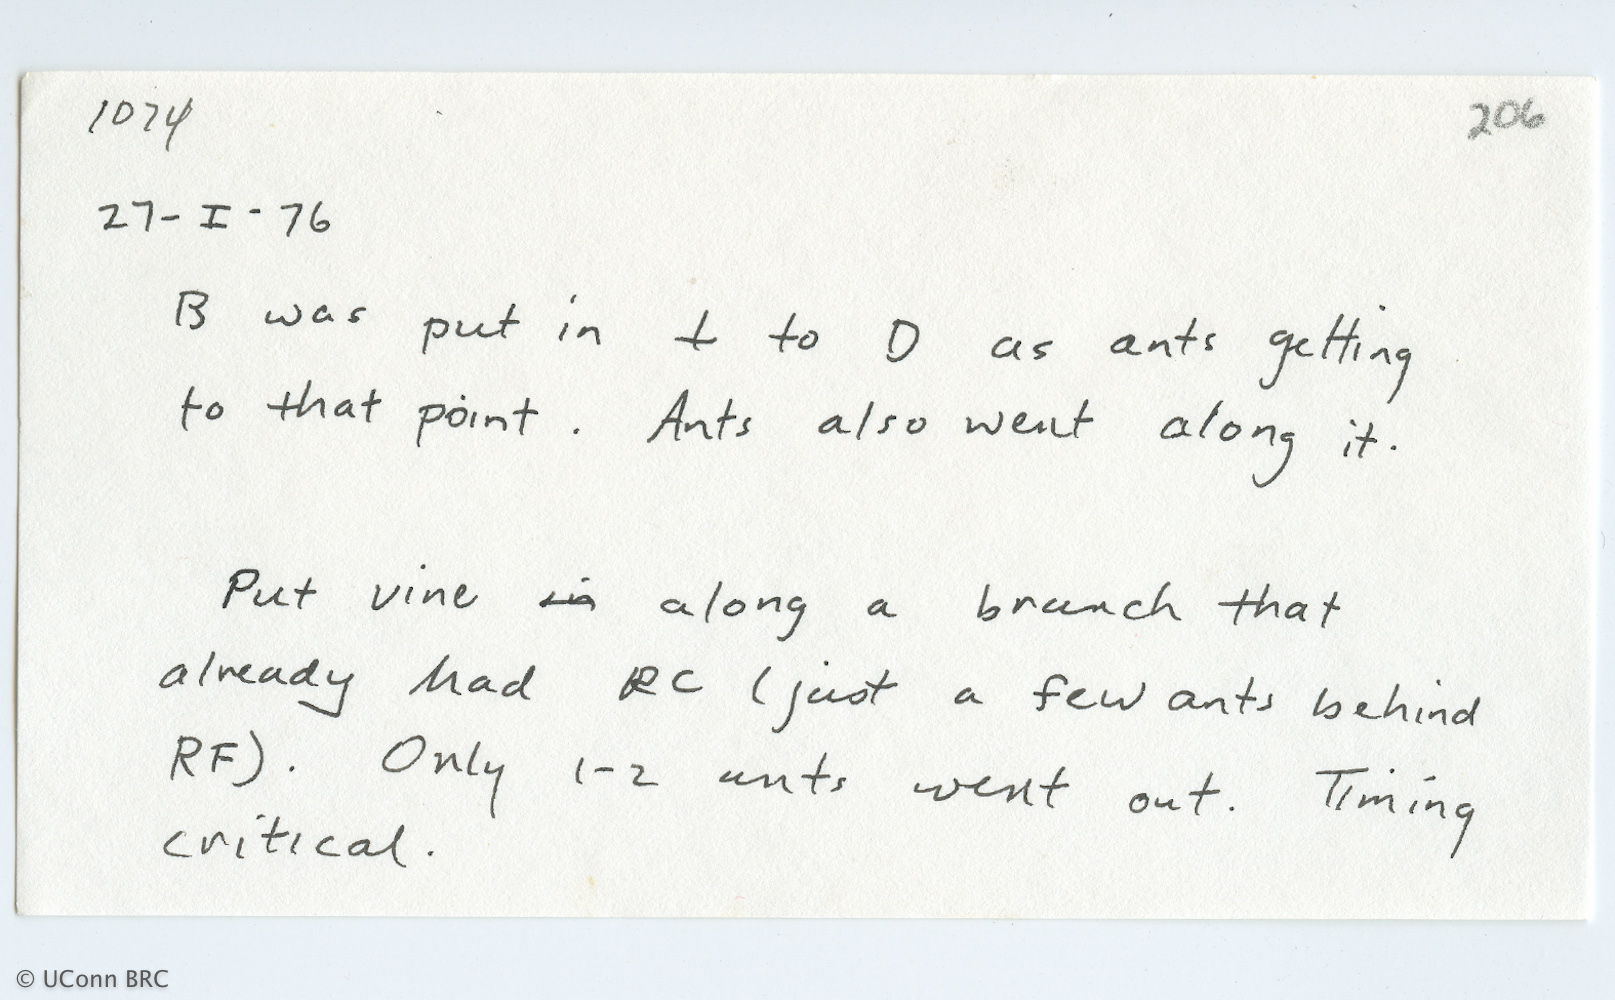 1074
206
27-I-76
B was put in ⊥ to D as ants getting
to that point. Ants also went along it.
Put vine in along a branch that
already had RC (just a few ants behind
RF). Only 1-2 ants went out. Timing
critical.
© UConn BRC